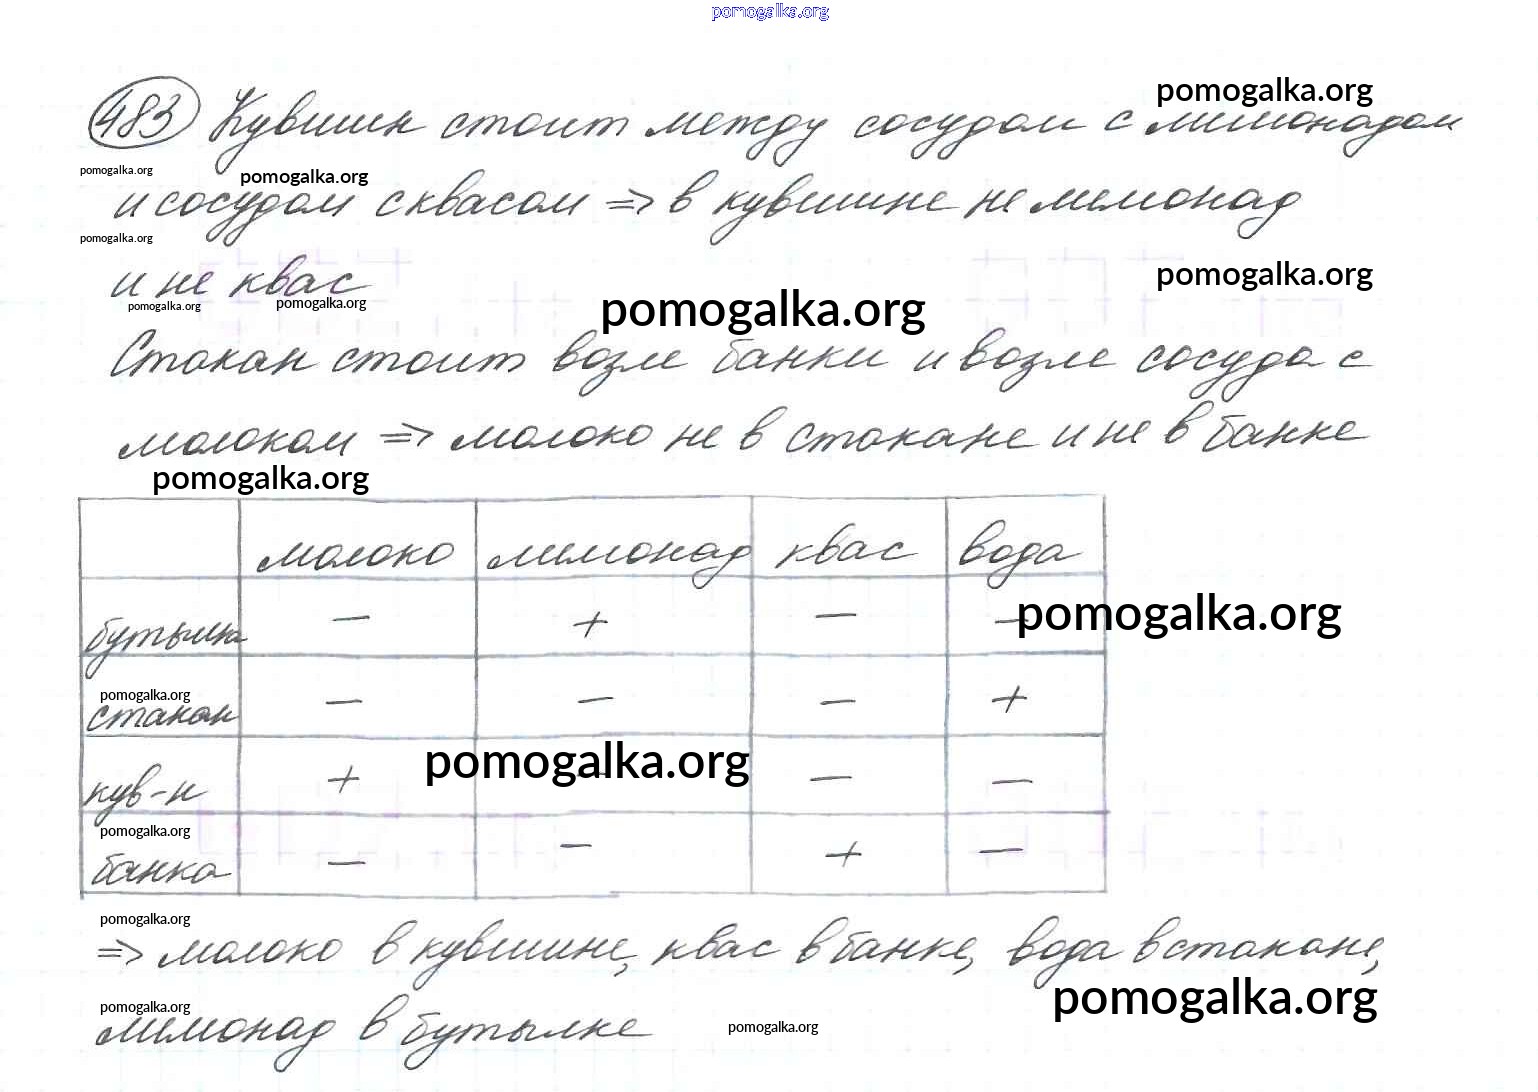 pomogalka.org
483 Кувшин стоит между сосудом с лимонадом
pomogalka.org
pomogalka.org
pomogalka.org
и сосудом с квасом => в кувшине не лимонад
pomogalka.org
и не квас
pomogalka.org
pomogalka.org
pomogalka.org
pomogalka.org
Стакан стоит возле банки и возле сосуда с
молоком => молоко не в стакане и не в банке
pomogalka.org
молоко лимонад квас вода
бутылка — + — —
pomogalka.org
pomogalka.org
стакан — — — +
кув-н + — — —
pomogalka.org
pomogalka.org
банка — — + —
pomogalka.org
=> молоко в кувшине, квас в банке, вода в стакане,
pomogalka.org
pomogalka.org
лимонад в бутылке
pomogalka.org